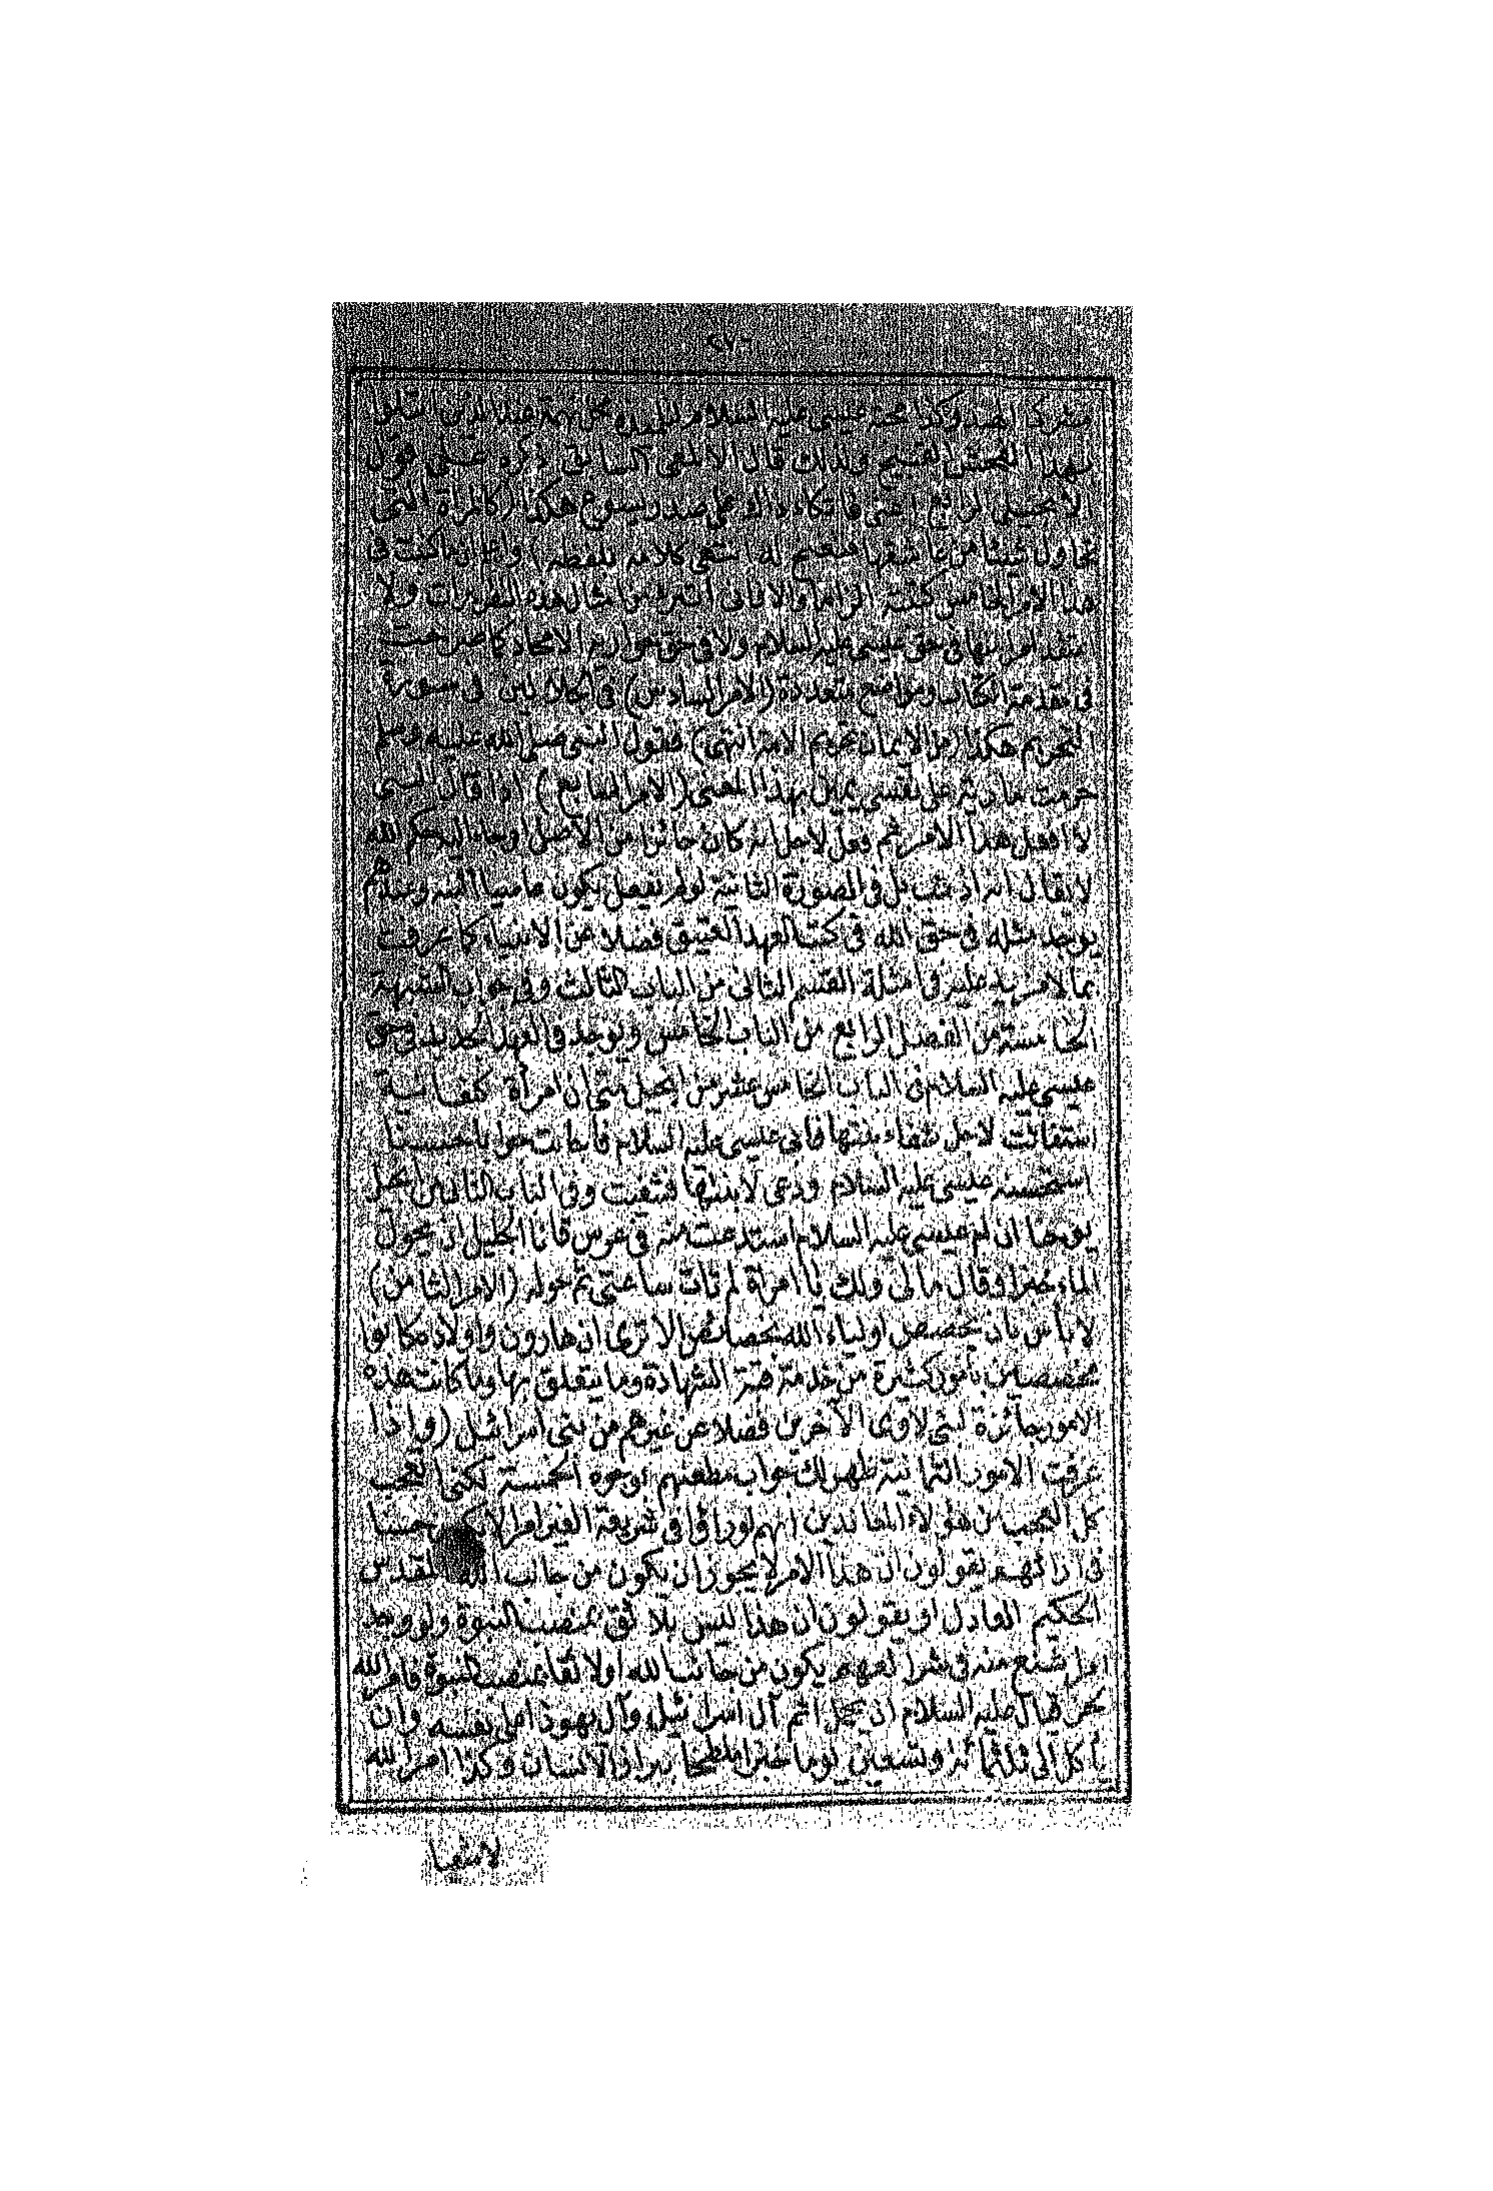 عيسى عليه السلام
قال السابق ذكره على قول
على صدر يسوع هكذا (كالمرأة التى
تحاول شيئا من عاشقها له انتهى كلامه بلفظه) ما كتبت فى
هذا الامر الخامس كتبته الزاما والا فانى اتبرأ من امثال هذه التقريرات ولا
اعتقد امرا منها فى حق عيسى عليه السلام ولا فى حق حواريه الامجاد كما صرحت
فى مقدمة الكتاب ومواضع متعددة (الامر السادس) فى الجلالين فى سورة
التحريم هكذا (من الايمان تحريم الامة انتهى) فقول النبى صلى الله عليه وسلم
حرمت مارية على نفسى يمين بهذا المعنى (الامر السابع) اذا قال النبى
لا افعل هذا الامر ثم فعل لاجل انه كان جائزا من الاصل او جاء اليه حكم الله
لا يقال انه اذنب بل فى الصورة الثانية لو لم يفعل يكون عاصيا البتة
يوجد مثله فى حق الله فى كتب العهد العتيق فضلا عن الانبياء كما عرفت
بما لا مزيد عليه فى امثلة القسم الثانى من الباب الثالث وفى جواب الشبهة
الخامسة من الفصل الرابع من الباب الخامس ويوجد فى العهد الجديد فى حق
عيسى عليه السلام فى الباب الخامس عشر من انجيل متى ان امرأة كنعانية
استغاثت لاجل شفاء بنتها فابى عيسى عليه السلام فاجابت جوابا حسنا
استحسنه عيسى عليه السلام ودعى لابنتها فشفيت وفى الباب الثانى من انجيل
يوحنا ان ام عيسى عليه السلام استدعت منه فى عرس قانا الجليل ان يحول
الماء خمرا فقال ما لى ولك يا امرأة لم تأت ساعتى ثم حوله (الامر الثامن)
لا بأس بان يخصص اولياء الله بخصائص الا ترى ان هارون واولاده كانوا
مخصصين بامور كثيرة من خدمة قبة الشهادة وما يتعلق بها وما كانت هذه
الامور جائزة لبنى لاوى الاخرين فضلا عن غيرهم من بنى اسرائيل (واذا
عرفت الامور الثمانية ظهر لك جواب مطعنهم بوجوه الخمسة لكنى اتعجب
كل العجب من هؤلاء المعاندين انهم لو رأوا فى شريعة الغير امرا لا يكون حسنا
فى ارائهم يقولون ان هذا الامر لا يجوز ان يكون من جانب الله المقدس
الحكيم العادل او يقولون ان هذا ليس بلائق بمنصب النبوة ولو وجد
امر اشنع منه فى شرائعهم يكون من جانب الله او لائقا بمنصب النبوة فامر الله
حزقيال عليه السلام ان يحمل اثم آل اسرائيل وآل يهوذا على نفسه وان
يأكل الى ثلثمائة وتسعين يوما خبزا ملطخا ببراز الانسان وكذا امر الله
لاشعيا